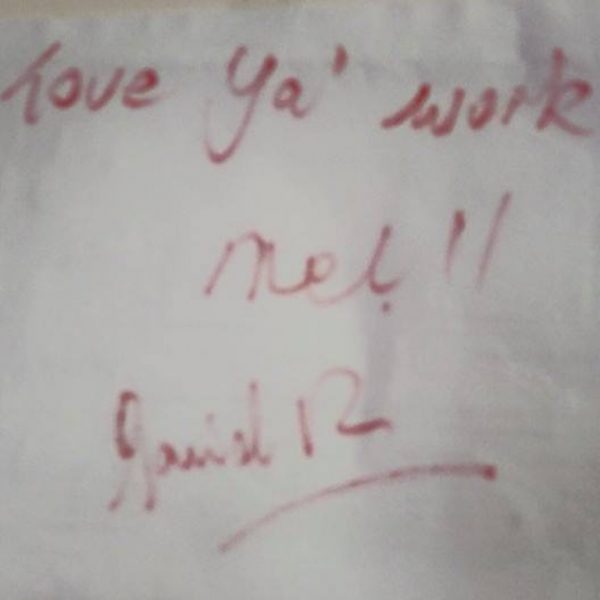 Love Ya' work
Mel!!
David R